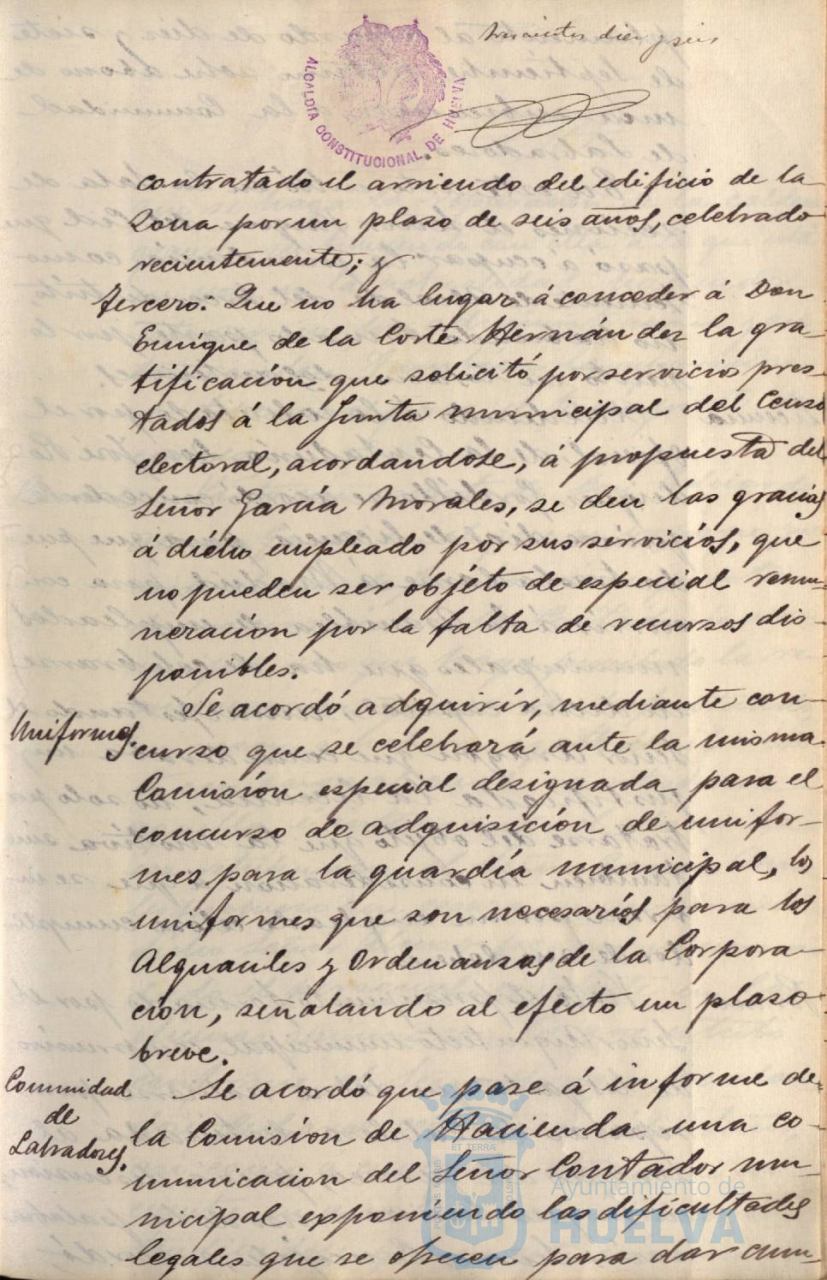 trescientos diez y seis
ALCALDÍA CONSTITUCIONAL DE HUELVA
contratado el arriendo del edificio de la
Zona por un plaso de seis años, celebrado
recientemente; y
Tercero: Que no ha lugar á conceder á Don
Enrique de la Corte Hernández la gra-
tificación que solicitó por servicios pres-
tados á la Junta municipal del Censo
electoral, acordandose, á propuesta del
Señor García Morales, se den las gracias
á dicho empleado por sus servicios, que
no pueden ser objeto de especial remu-
neración por la falta de recursos dis-
ponibles.
Uniformes.
Se acordó adquirir, mediante con-
curso que se celebrará ante la misma
Comisión especial designada para el
concurso de adquisición de unifor-
mes para la guardia municipal, los
uniformes que son necesarios para los
Alguaciles y Ordenanzas de la Corpora-
ción, señalando al efecto un plaso
breve.
Comunidad
de
Labradores.
Se acordó que pase á informe de
la Comisión de Hacienda una co-
municacion del Señor Contador mu-
nicipal exponiendo las dificultades
legales que se ofrecen para dar cum-
ET TERRA
Ayuntamiento de
HUELVA